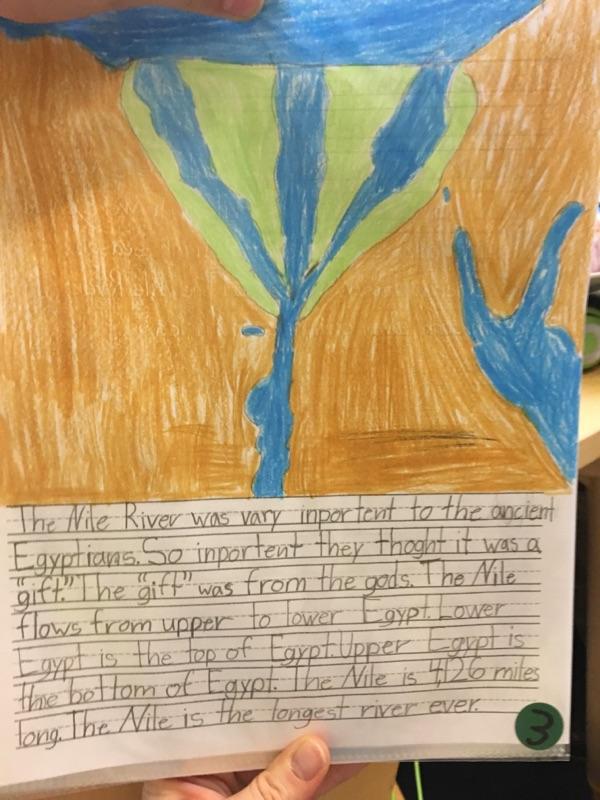 The Nile River was vary inportent to the ancient
Egyptians. So inportent they thoght it was a
"gift." The "gift" was from the gods. The Nile
flows from upper to lower Egypt. Lower
Egypt is the top of Egypt. Upper Egypt is
the bottom of Egypt. The Nile is 4,126 miles
long. The Nile is the longest river ever.
3